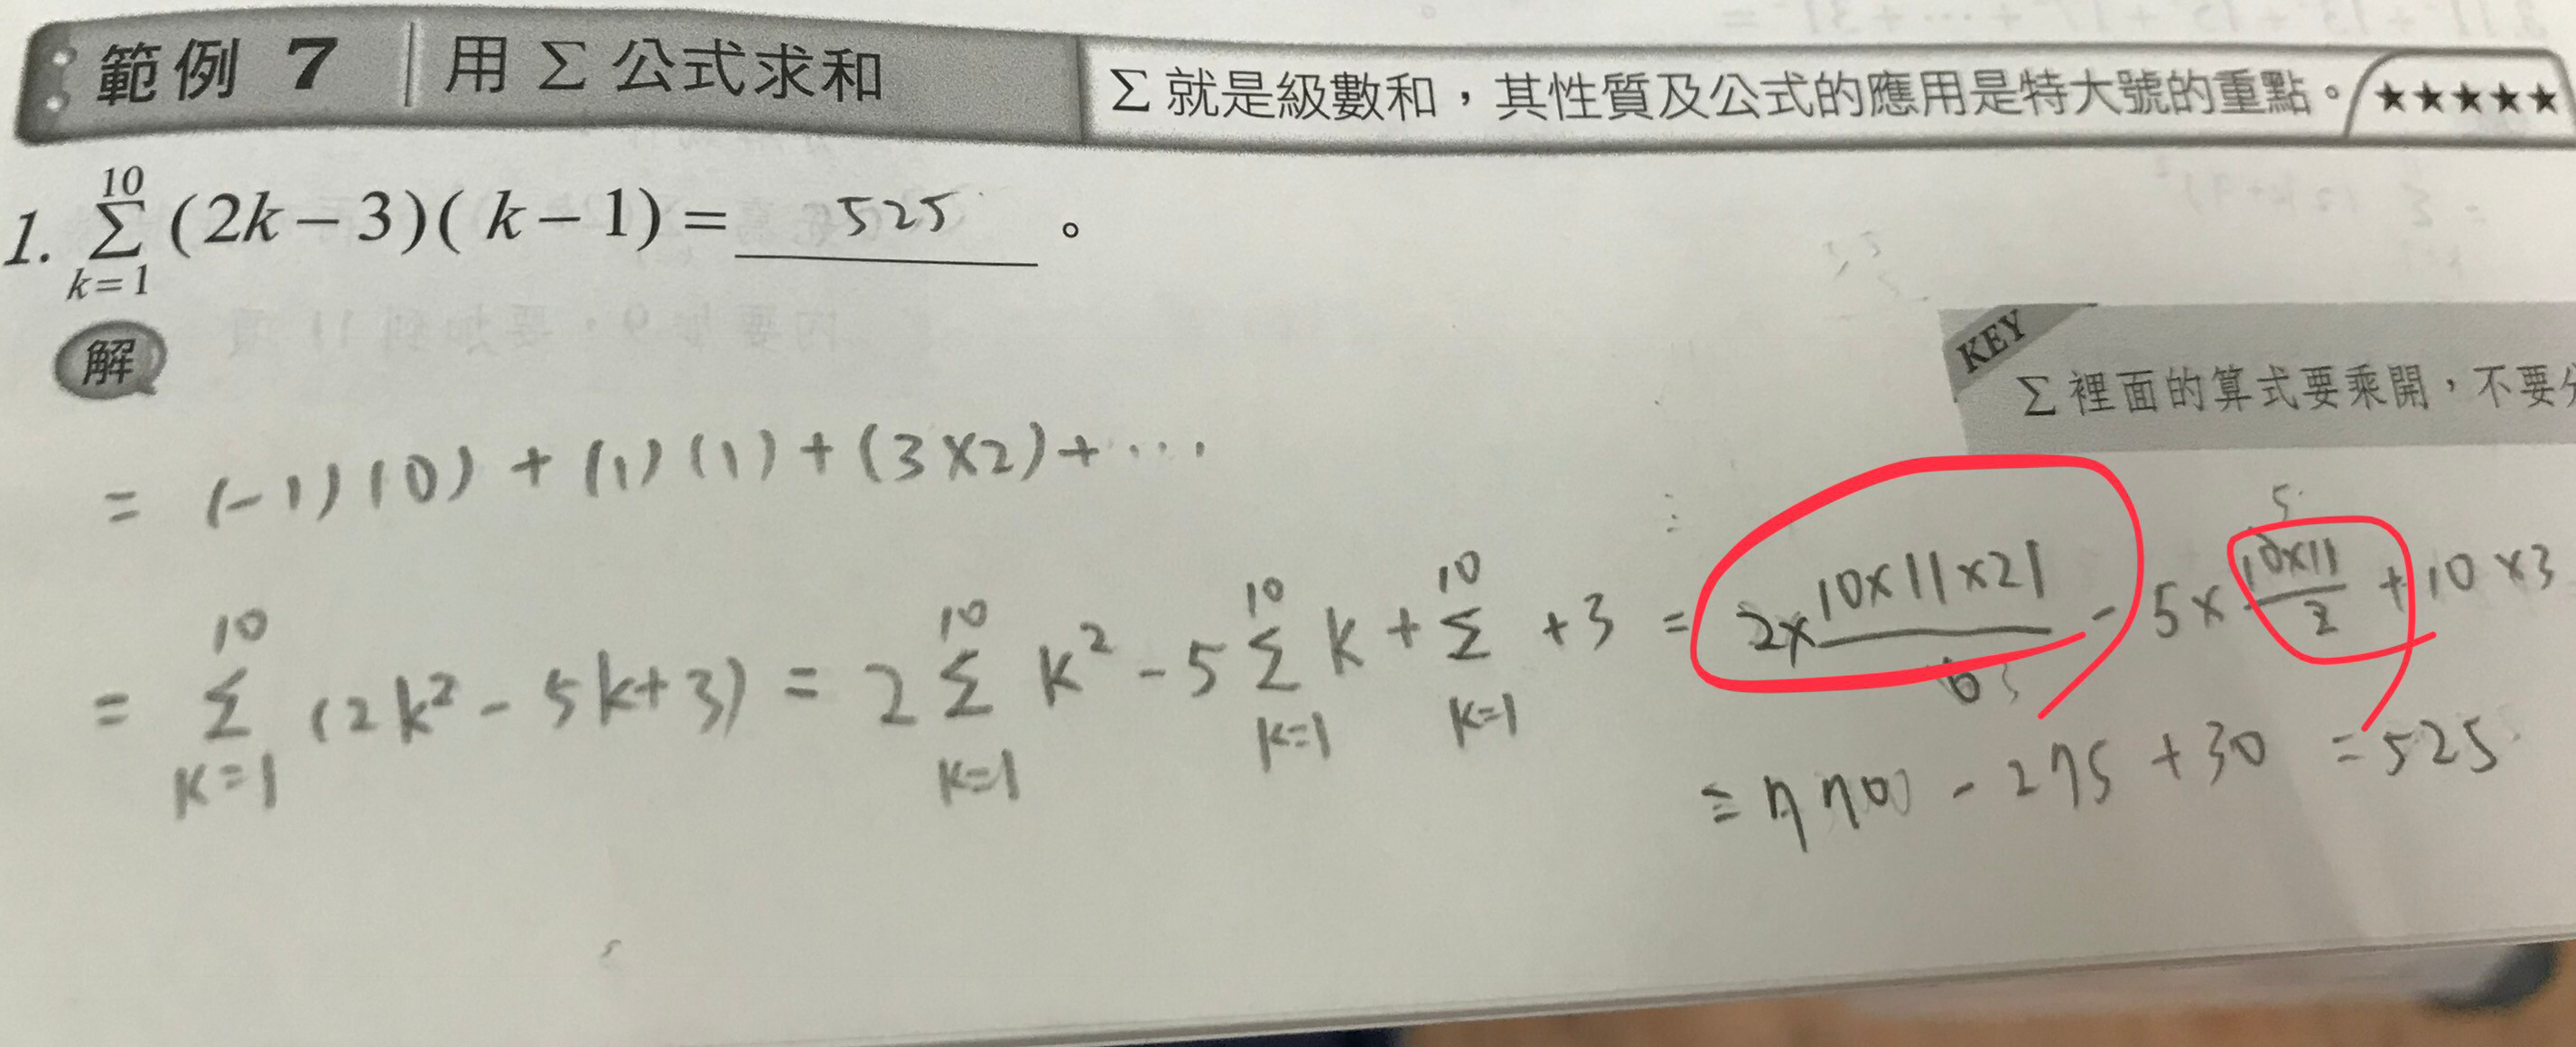 範例 7 用 Σ 公式求和 Σ 就是級數和，其性質及公式的應用是特大號的重點。 ★★★★★
1. \sum_{k=1}^{10} (2k－3)( k－1)＝ 525 。
解
KEY
Σ 裡面的算式要乘開，不要
= (-1)(0) + (1)(1) + (3×2) + ...
= \sum_{k=1}^{10} (2k²-5k+3) = 2 \sum_{k=1}^{10} k² - 5 \sum_{k=1}^{10} k + \sum_{k=1}^{10} +3 = 2× \frac{10×11×21}{6 3} - 5× \frac{10×11}{2} 5 + 10×3
= 7700 - 275 + 30 = 525